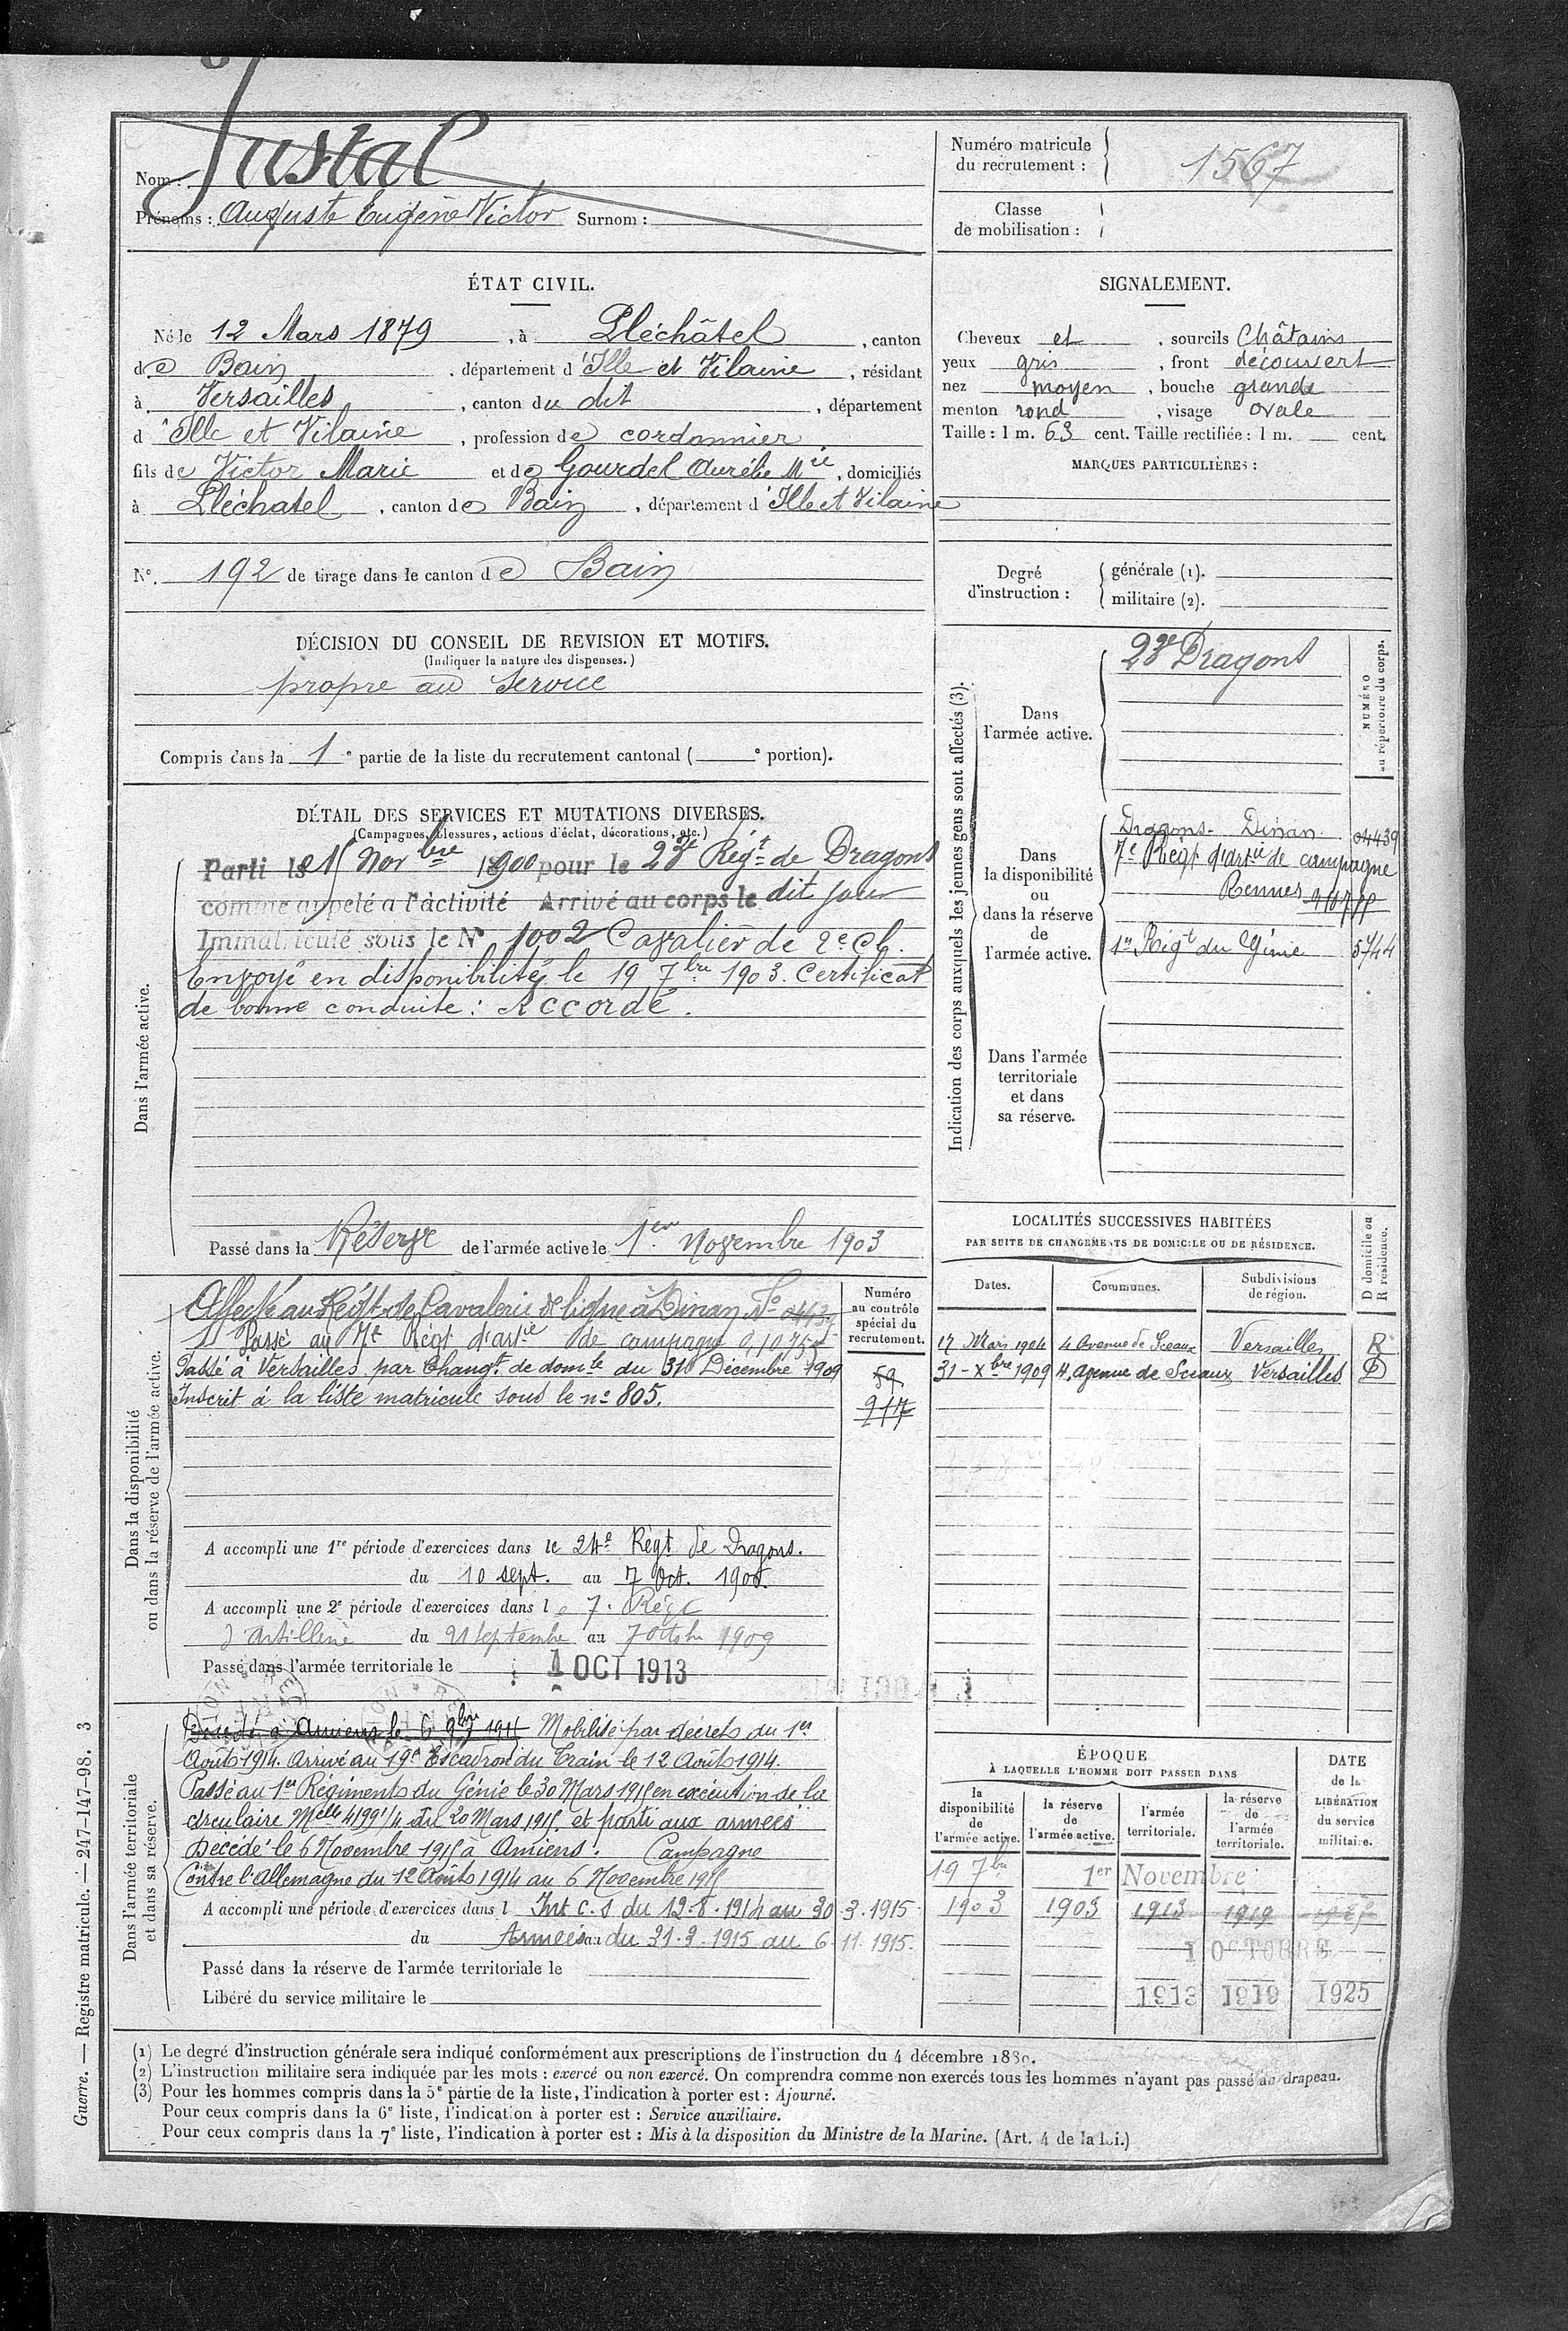 Nom : Justal
Prénoms : Auguste Eugène Victor Surnom :
Numéro matricule
du recrutement : 1567
Classe
de mobilisation :
ÉTAT CIVIL.
Né le 12 Mars 1879, à Pléchâtel, canton
de Bain, département d'Ille et Vilaine, résidant
à Versailles, canton du dit, département
d'Ille et Vilaine, profession de cordonnier
fils de Victor Marie et de Gourdel Aurélie Mie, domiciliés
à Pléchatel, canton de Bain, département d'Ille et Vilaine
N° 192 de tirage dans le canton de Bain
SIGNALEMENT.
Cheveux et, sourcils Châtains
yeux gris, front découvert
nez moyen, bouche grande
menton rond, visage ovale
Taille : 1 m. 63 cent. Taille rectifiée : 1 m. cent.
MARQUES PARTICULIÈRES :
Degré
d'instruction :
générale (1).
militaire (2).
DÉCISION DU CONSEIL DE REVISION ET MOTIFS.
(Indiquer la nature des dispenses.)
propre au service
Compris dans la 1e partie de la liste du recrutement cantonal ( e portion).
DÉTAIL DES SERVICES ET MUTATIONS DIVERSES.
(Campagnes, blessures, actions d'éclat, décorations, etc.)
Dans l'armée active.
Parti le 15 Novbre 1900 pour le 23e Régt de Dragons
comme appelé à l'activité Arrivé au corps le dit jour
Immatriculé sous le N° 1002 Cavalier de 2e Cl.
Envoyé en disponibilité le 19 7bre 1903. Certificat
de bonne conduite : Accordé.
Passé dans la Réserve de l'armée active le 1er Novembre 1903
Indication des corps auxquels les jeunes gens sont affectés (3).
NUMÉRO
au répertoire du corps.
Dans
l'armée active.
23e Dragons
Dans
la disponibilité
ou
dans la réserve
de
l'armée active.
Dragons - Dinan 04439
7e Régt d'artie de campagne
Rennes
1er Régt du Génie 5744
Dans l'armée
territoriale
et dans
sa réserve.
LOCALITÉS SUCCESSIVES HABITÉES
PAR SUITE DE CHANGEMENTS DE DOMICILE OU DE RÉSIDENCE.
Dates. Communes. Subdivisions
de région.
D domicile ou
R résidence.
17 Mars 1904 4 Avenue de Sceaux Versailles R
31 - Xbre 1909 4, avenue de Sceaux Versailles D
Dans la disponibilité
ou dans la réserve de l'armée active.
Numéro
au contrôle
spécial du
recrutement.
59
917
Affecté au Régt de Cavalerie de ligne à Dinan N° 04439
Passé au 7e Régt d'artie de campagne
Passé à Versailles par Changt de domle du 31 Décembre 1909
Inscrit à la liste matricule sous le n° 805.
A accompli une 1re période d'exercices dans le 24e Régt de Dragons.
du 10 sept. au 7 Oct. 1906.
A accompli une 2e période d'exercices dans le 7e Régt
d'artillerie du 21 septembre au 7 octobre 1909
Passé dans l'armée territoriale le 1 OCT 1913
Dans l'armée territoriale
et dans sa réserve.
Décédé à Amiens le 6 9bre 1915 Mobilisé par décret du 1er
Août 1914. Arrivé au 19e Escadron du Train le 12 Août 1914.
Passé au 1er Régiment du Génie le 30 Mars 1915 en exécution de la
circulaire Melle 4199 1/4 du 20 Mars 1915 et parti aux armées
Décédé le 6 Novembre 1915 à Amiens. Campagne
Contre l'Allemagne du 12 Août 1914 au 6 Novembre 1915
A accompli une période d'exercices dans l Int C.S du 12-8-1914 au 30-3-1915
du Armées au du 31-3-1915 au 6-11-1915.
Passé dans la réserve de l'armée territoriale le
Libéré du service militaire le
ÉPOQUE
À LAQUELLE L'HOMME DOIT PASSER DANS
la
disponibilité
de
l'armée active.
la réserve
de
l'armée active.
l'armée
territoriale.
la réserve
de
l'armée
territoriale.
DATE
de la
LIBÉRATION
du service
militaire.
19 7bre 1er Novembre
1903 1903 1913 1919
1 OCTOBRE
1913 1919 1925
(1) Le degré d'instruction générale sera indiqué conformément aux prescriptions de l'instruction du 4 décembre 1889.
(2) L'instruction militaire sera indiquée par les mots : exercé ou non exercé. On comprendra comme non exercés tous les hommes n'ayant pas passé au drapeau.
(3) Pour les hommes compris dans la 5e partie de la liste, l'indication à porter est : Ajourné.
Pour ceux compris dans la 6e liste, l'indication à porter est : Service auxiliaire.
Pour ceux compris dans la 7e liste, l'indication à porter est : Mis à la disposition du Ministre de la Marine. (Art. 4 de la loi.)
Guerre. — Registre matricule. — 247-147-98. 3